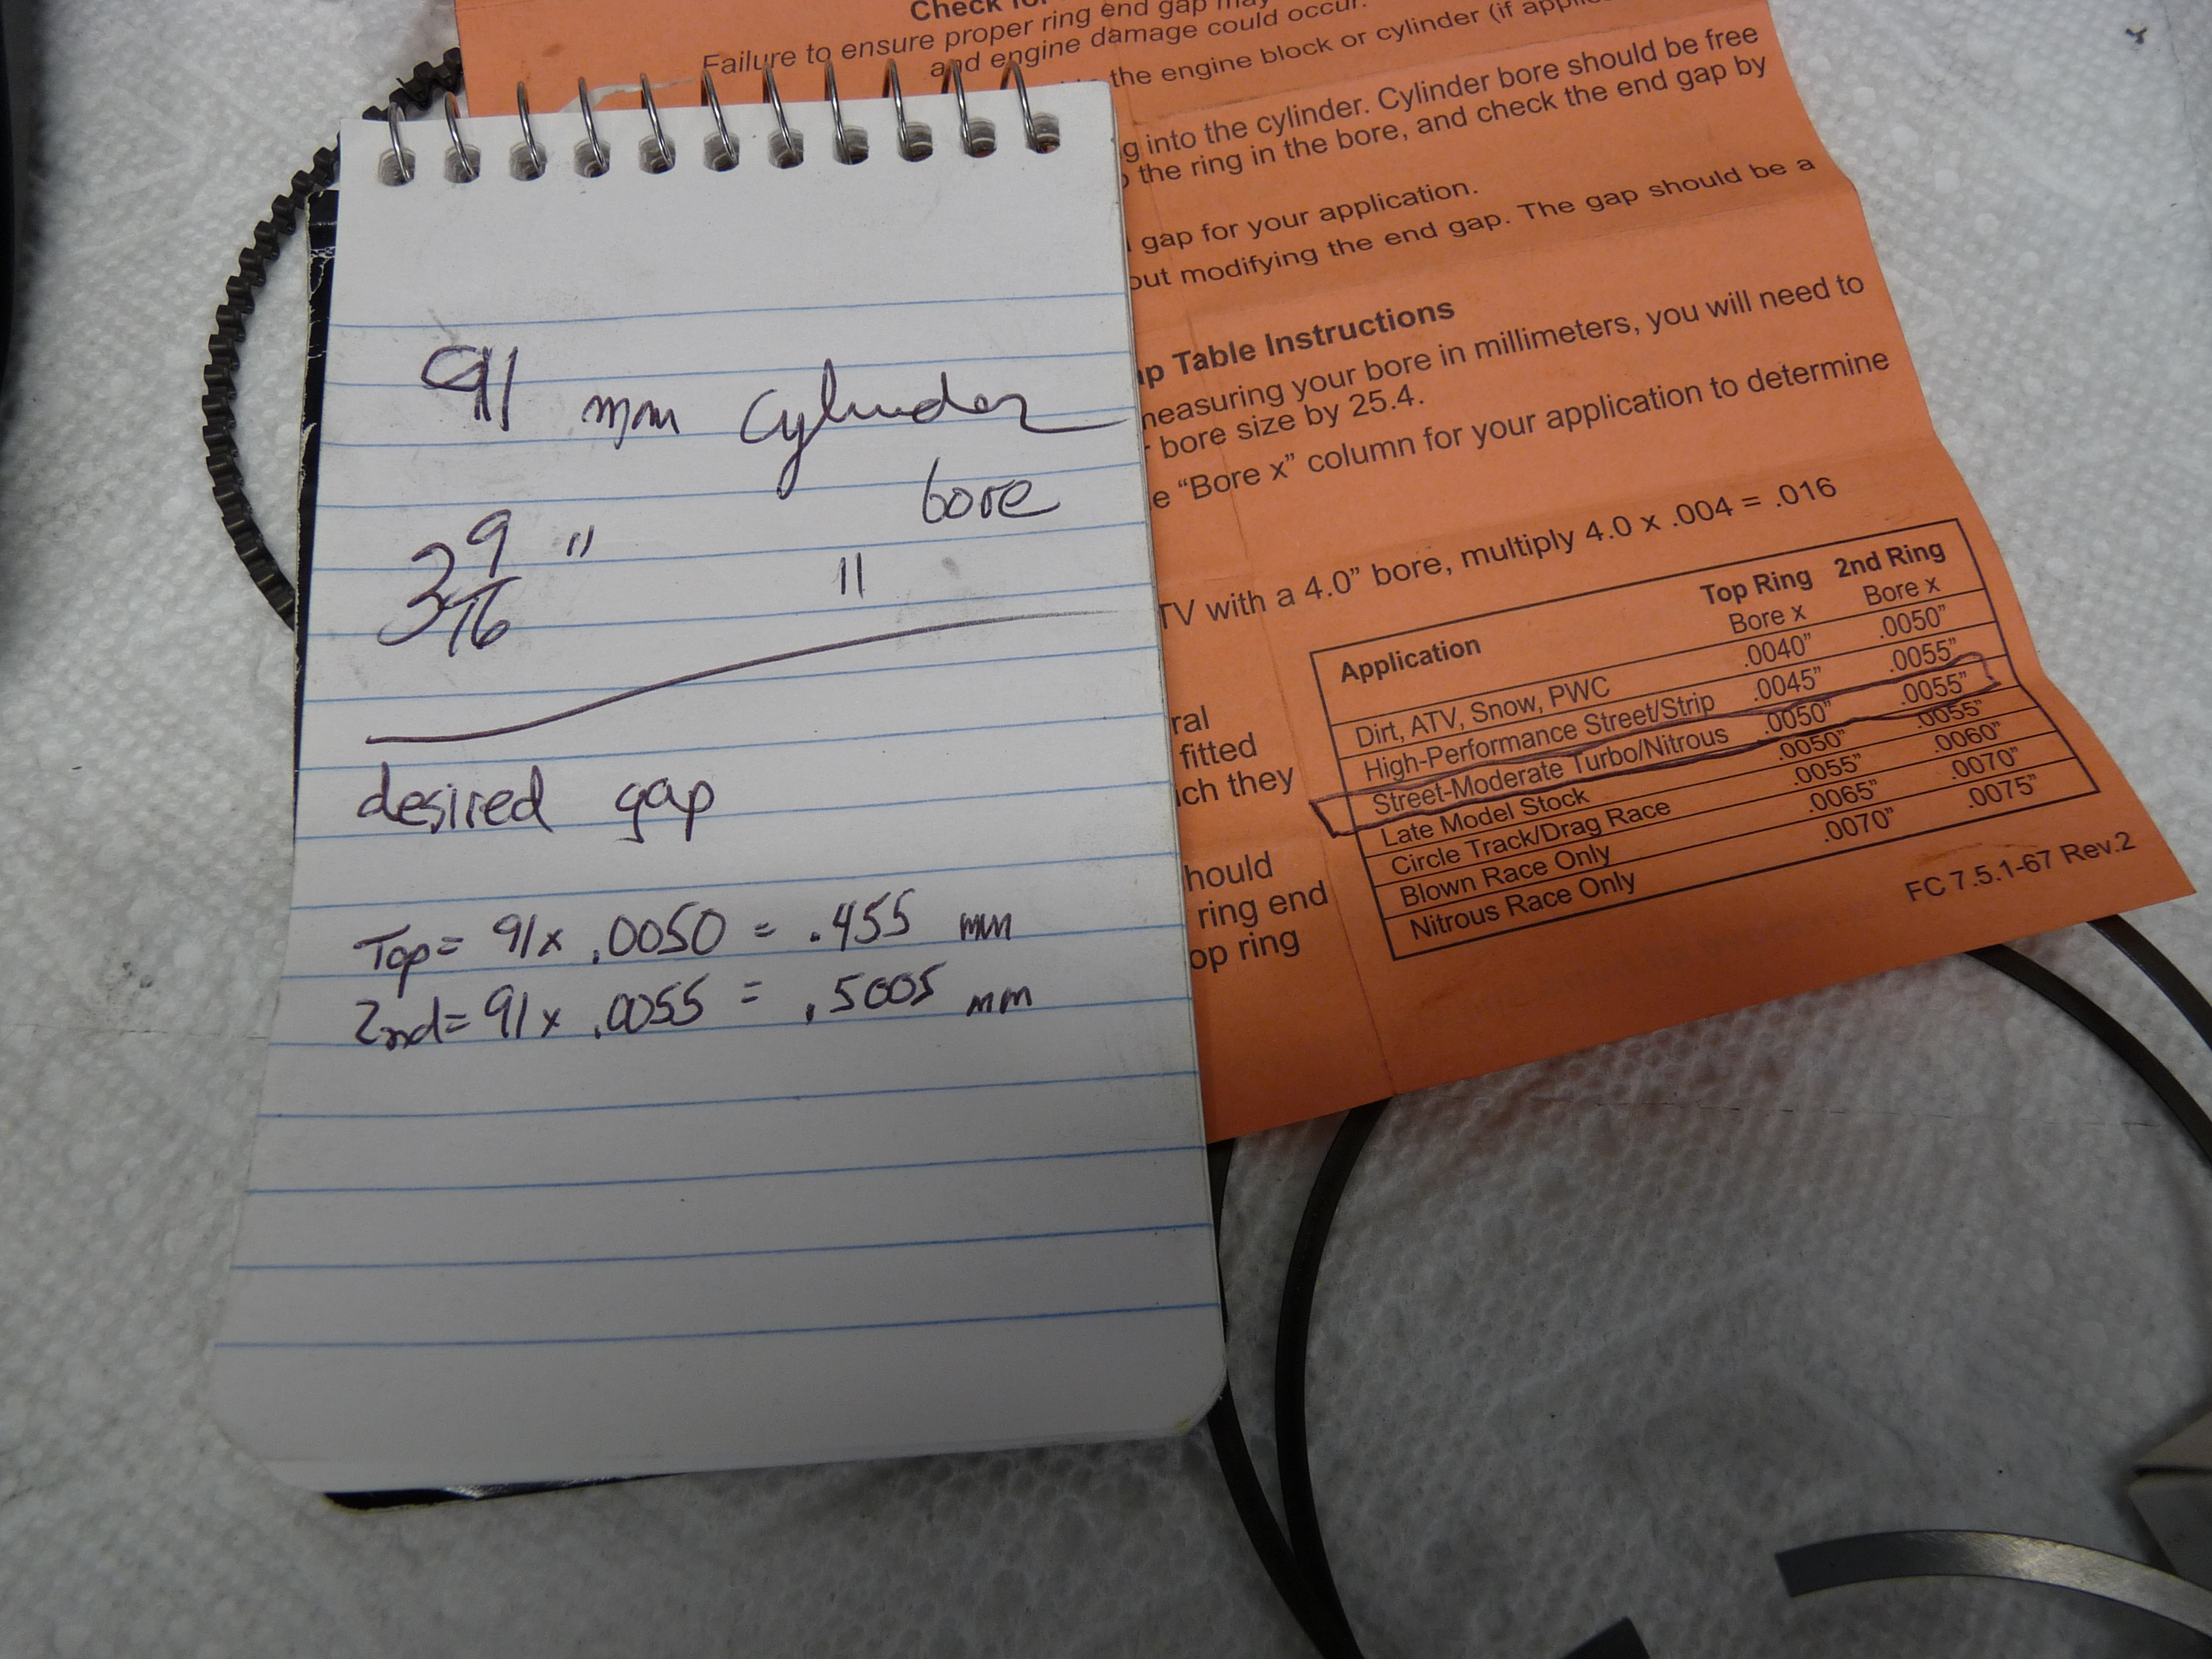 91 mm cylinder
bore
3 9/16 " "
desired gap
Top = 91 x .0050 = .455 mm
2nd = 91 x .0055 = .5005 mm
Check for
Failure to ensure proper ring end gap may
and engine damage could occur.
the engine block or cylinder (if
g into the cylinder. Cylinder bore should be free
the ring in the bore, and check the end gap by
gap for your application.
out modifying the end gap. The gap should be a
ap Table Instructions
measuring your bore in millimeters, you will need to
r bore size by 25.4.
e “Bore x” column for your application to determine
TV with a 4.0” bore, multiply 4.0 x .004 = .016
ral
fitted
ich they
hould
ring end
op ring
Application Top Ring 2nd Ring
Bore x Bore x
Dirt, ATV, Snow, PWC .0040” .0050”
High-Performance Street/Strip .0045” .0055”
Street-Moderate Turbo/Nitrous .0050” .0055”
Late Model Stock .0050” .0055”
Circle Track/Drag Race .0055” .0060”
Blown Race Only .0065” .0070”
Nitrous Race Only .0070” .0075”
FC 7.5.1-67 Rev.2